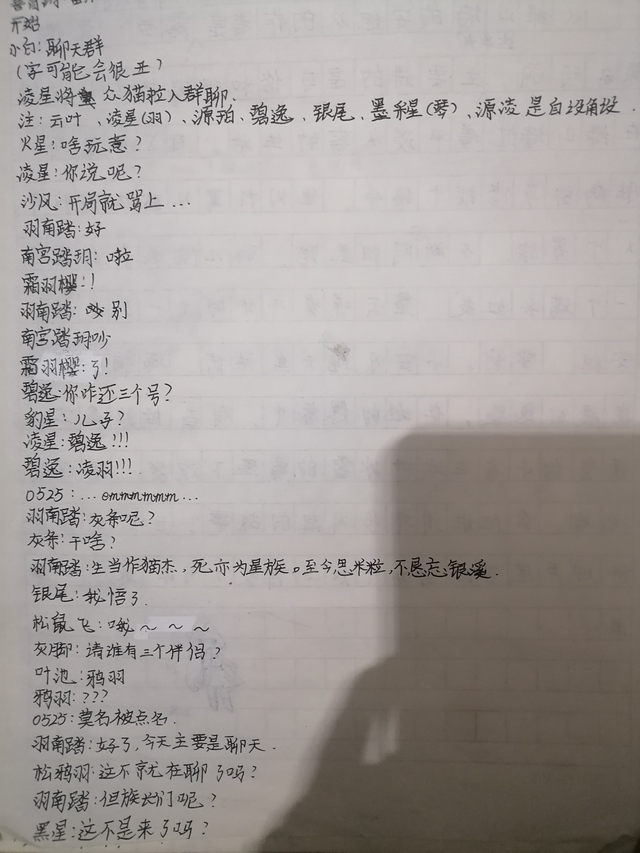 开始
小白:聊天群
(字可能会很丑)
凌星将众猫拉入群聊.
注:云叶、凌星(羽)、源珀、碧逸、银尾、墨禾星(琴)、源凌是自设角设.
火星:啥玩意?
凌星:你说呢?
沙风:开局就骂上...
羽南踏:好
南宫踏玥:啦
霜羽樱:!
羽南踏:别
南宫踏玥:吵
霜羽樱:了!
碧逸:你咋还三个号?
豹星:儿子?
凌星:碧逸!!!
碧逸:凌羽!!!
0525:...emmmmmm...
羽南踏:灰条呢?
灰条:干啥?
羽南踏:生当作猫杰,死亦为星族。至今思米粒,不恳忘银溪.
银尾:我悟了.
松鼠飞:哦~ ~ ~ ~
灰脚:请谁有三个伴侣?
叶池:鸦羽
鸦羽:???
0525:莫名被点名.
羽南踏:好了,今天主要是聊天.
松鸦羽:这不就在聊了吗?
羽南踏:但族长们呢?
黑星:这不是来了吗?